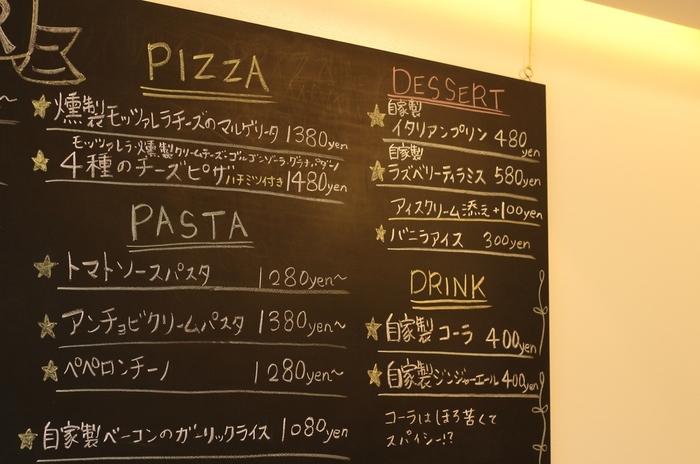 PIZZA
燻製モッツァレラチーズのマルゲリータ 1380yen
モッツァレラ・燻製クリームチーズ・ゴルゴンゾーラ・グラナ・パダン
4種のチーズピザ ハチミツイ付き 1480yen
PASTA
トマトソースパスタ 1280yen〜
アンチョビクリームパスタ 1380yen〜
ペペロンチーノ 1280yen〜
自家製ベーコンのガーリックライス 1080yen
DESSERT
自家製
イタリアンプリン 480yen
自家製
ラズベリーティラミス 580yen
アイスクリーム添え +100yen
バニラアイス 300yen
DRINK
自家製 コーラ 400yen
自家製ジンジャーエール 400yen
コーラは ほろ苦くて
スパイシー!?